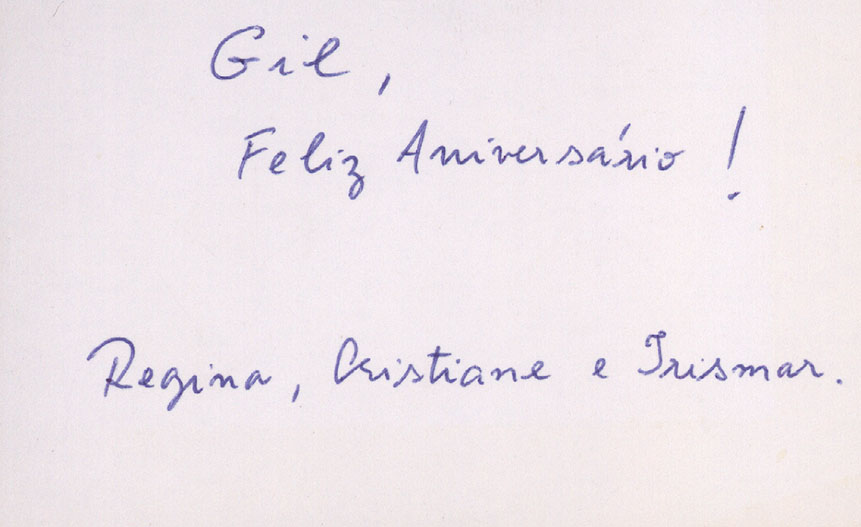 Gil,
Feliz Aniversário!
Regina, Cristiane e Irismar.